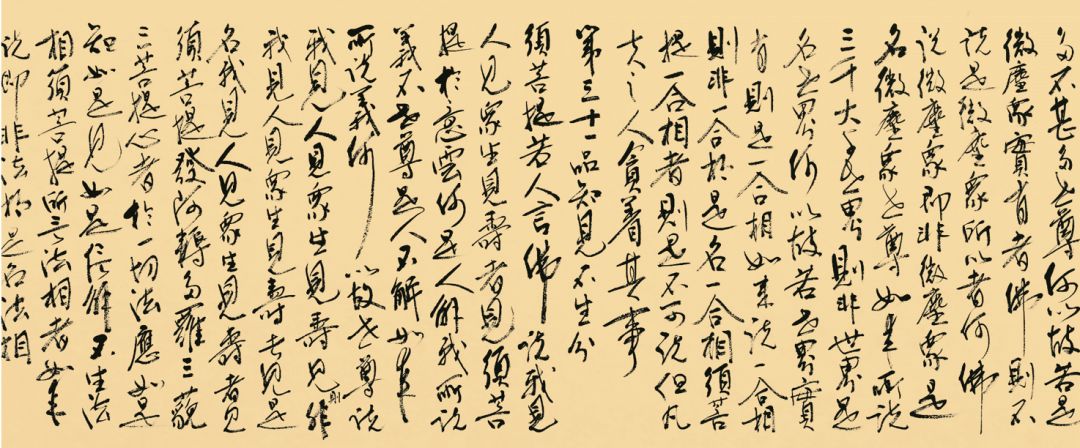 多不甚多世尊何以故若是
微塵眾實有者佛則不
說是微塵眾所以者何佛
說微塵眾即非微塵眾是
名微塵眾世尊如來所說
三千大千世界則非世界是
名世界何以故若世界實
有則是一合相如來說一合相
則非一合相是名一合相須菩
提一合相者則是不可說但凡
夫之人貪着其事
第三十一品知見不生分
須菩提若人言佛說我見
人見眾生見壽者見須菩
提於意雲何是人解我所說
義不世尊是人不解如來
所說義何以故世尊說
我見人見眾生見壽見則非
我見人見眾生見壽者見是
名我見人見眾生見壽者見
須菩提發阿耨多羅三藐
三菩提心者於一切法應如是
知如是見如是信解不生法
相須菩提所言法相者如來
說即非法相是名法相